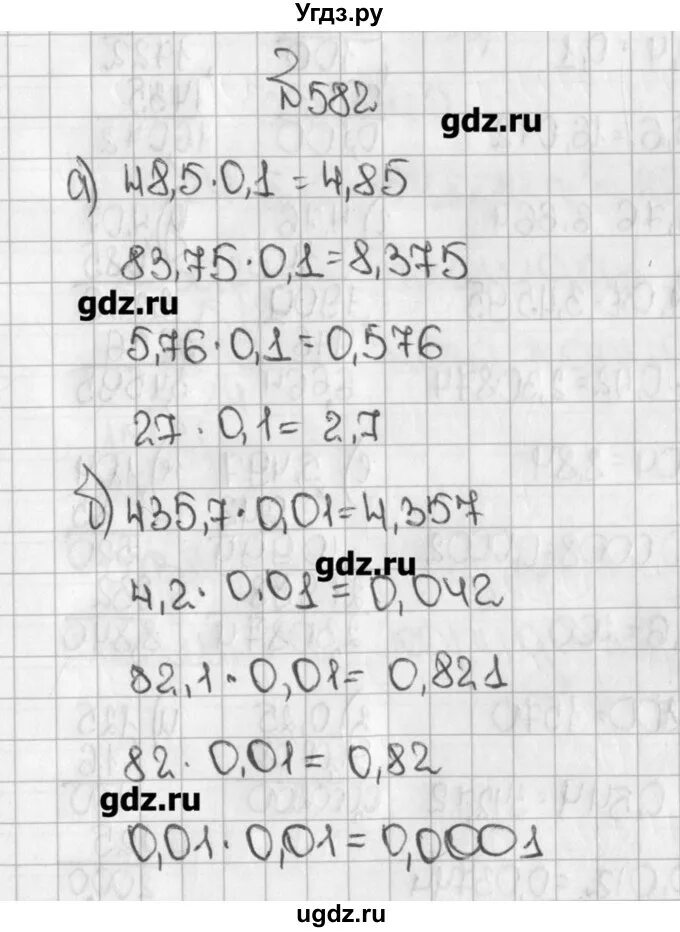 Угдз.ру
№582
gdz.ru
а) 48,5·0,1=4,85
83,75·0,1=8,375
gdz.ru
5,76·0,1=0,576
27·0,1=2,7
б) 435,7·0,01=4,357
gdz.ru
4,2·0,01=0,042
82,1·0,01=0,821
82·0,01=0,82
gdz.ru
0,01·0,01=0,0001
ugdz.ru